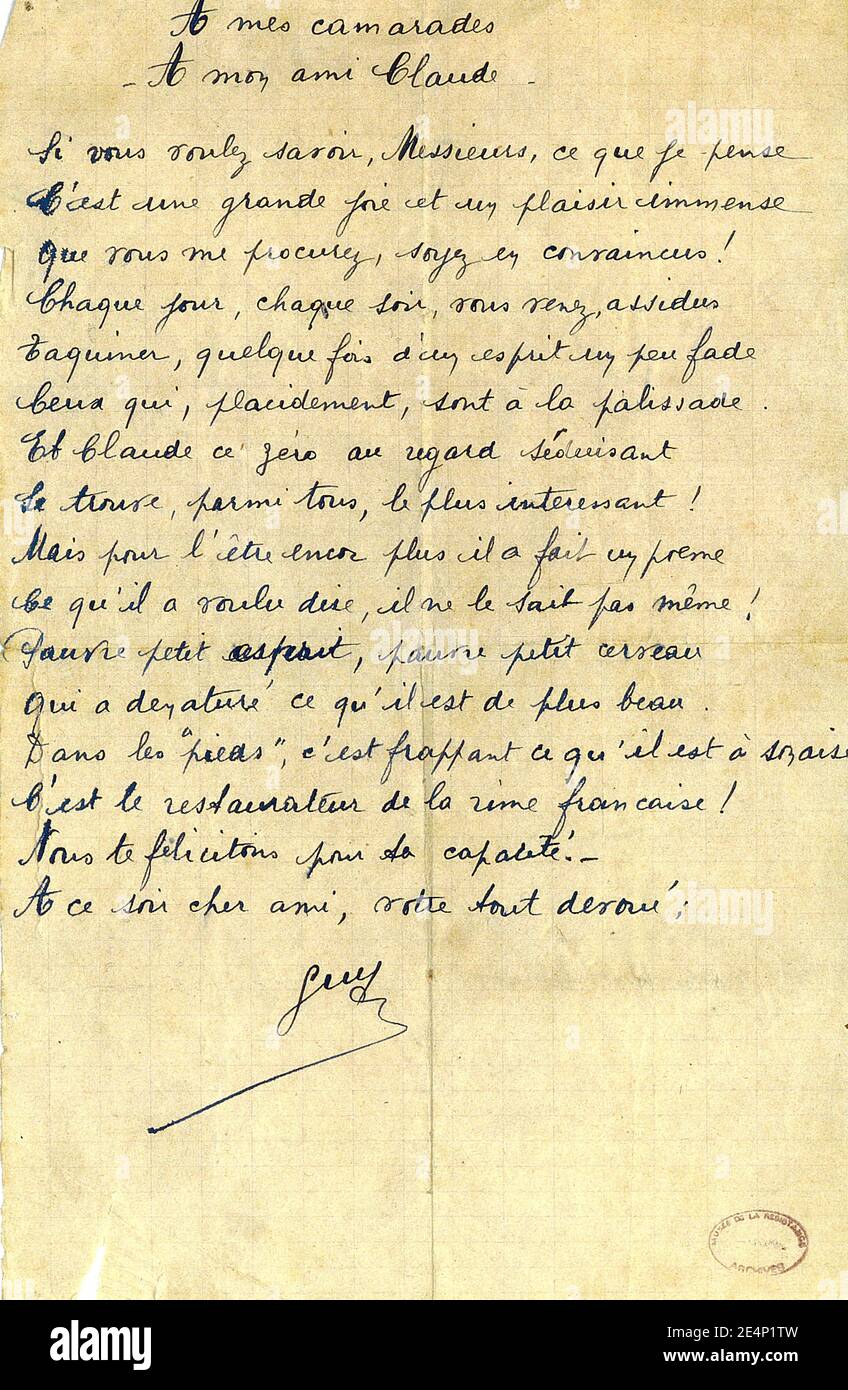 A mes camarades
- A mon ami Claude -
Si vous voulez savoir, Messieurs, ce que je pense
C'est une grande joie et un plaisir immense
Que vous me procurez, soyez en convaincus !
Chaque jour, chaque soir, vous venez, assidus
Taquiner, quelque fois d'un esprit un peu fade
Ceux qui, placidement, sont à la palissade.
Et Claude ce zéro au regard séduisant
Se trouve, parmi tous, le plus interessant !
Mais pour l'être encor plus il a fait un poeme
Ce qu'il a voulu dire, il ne le sait pas même !
Pauvre petit esprit, pauvre petit cerveau
Qui a denaturé ce qu'il est de plus beau.
Dans les "pieds", c'est frappant ce qu'il est à son aise
C'est le restaurateur de la rime francaise !
Nous te félicitons pour ta capacité. -
A ce soir cher ami, votre tout devoué ;
Guy
MUSEE DE LA RESISTANCE
ARCHIVES
alamy
Image ID: 2E4P1TW
www.alamy.com